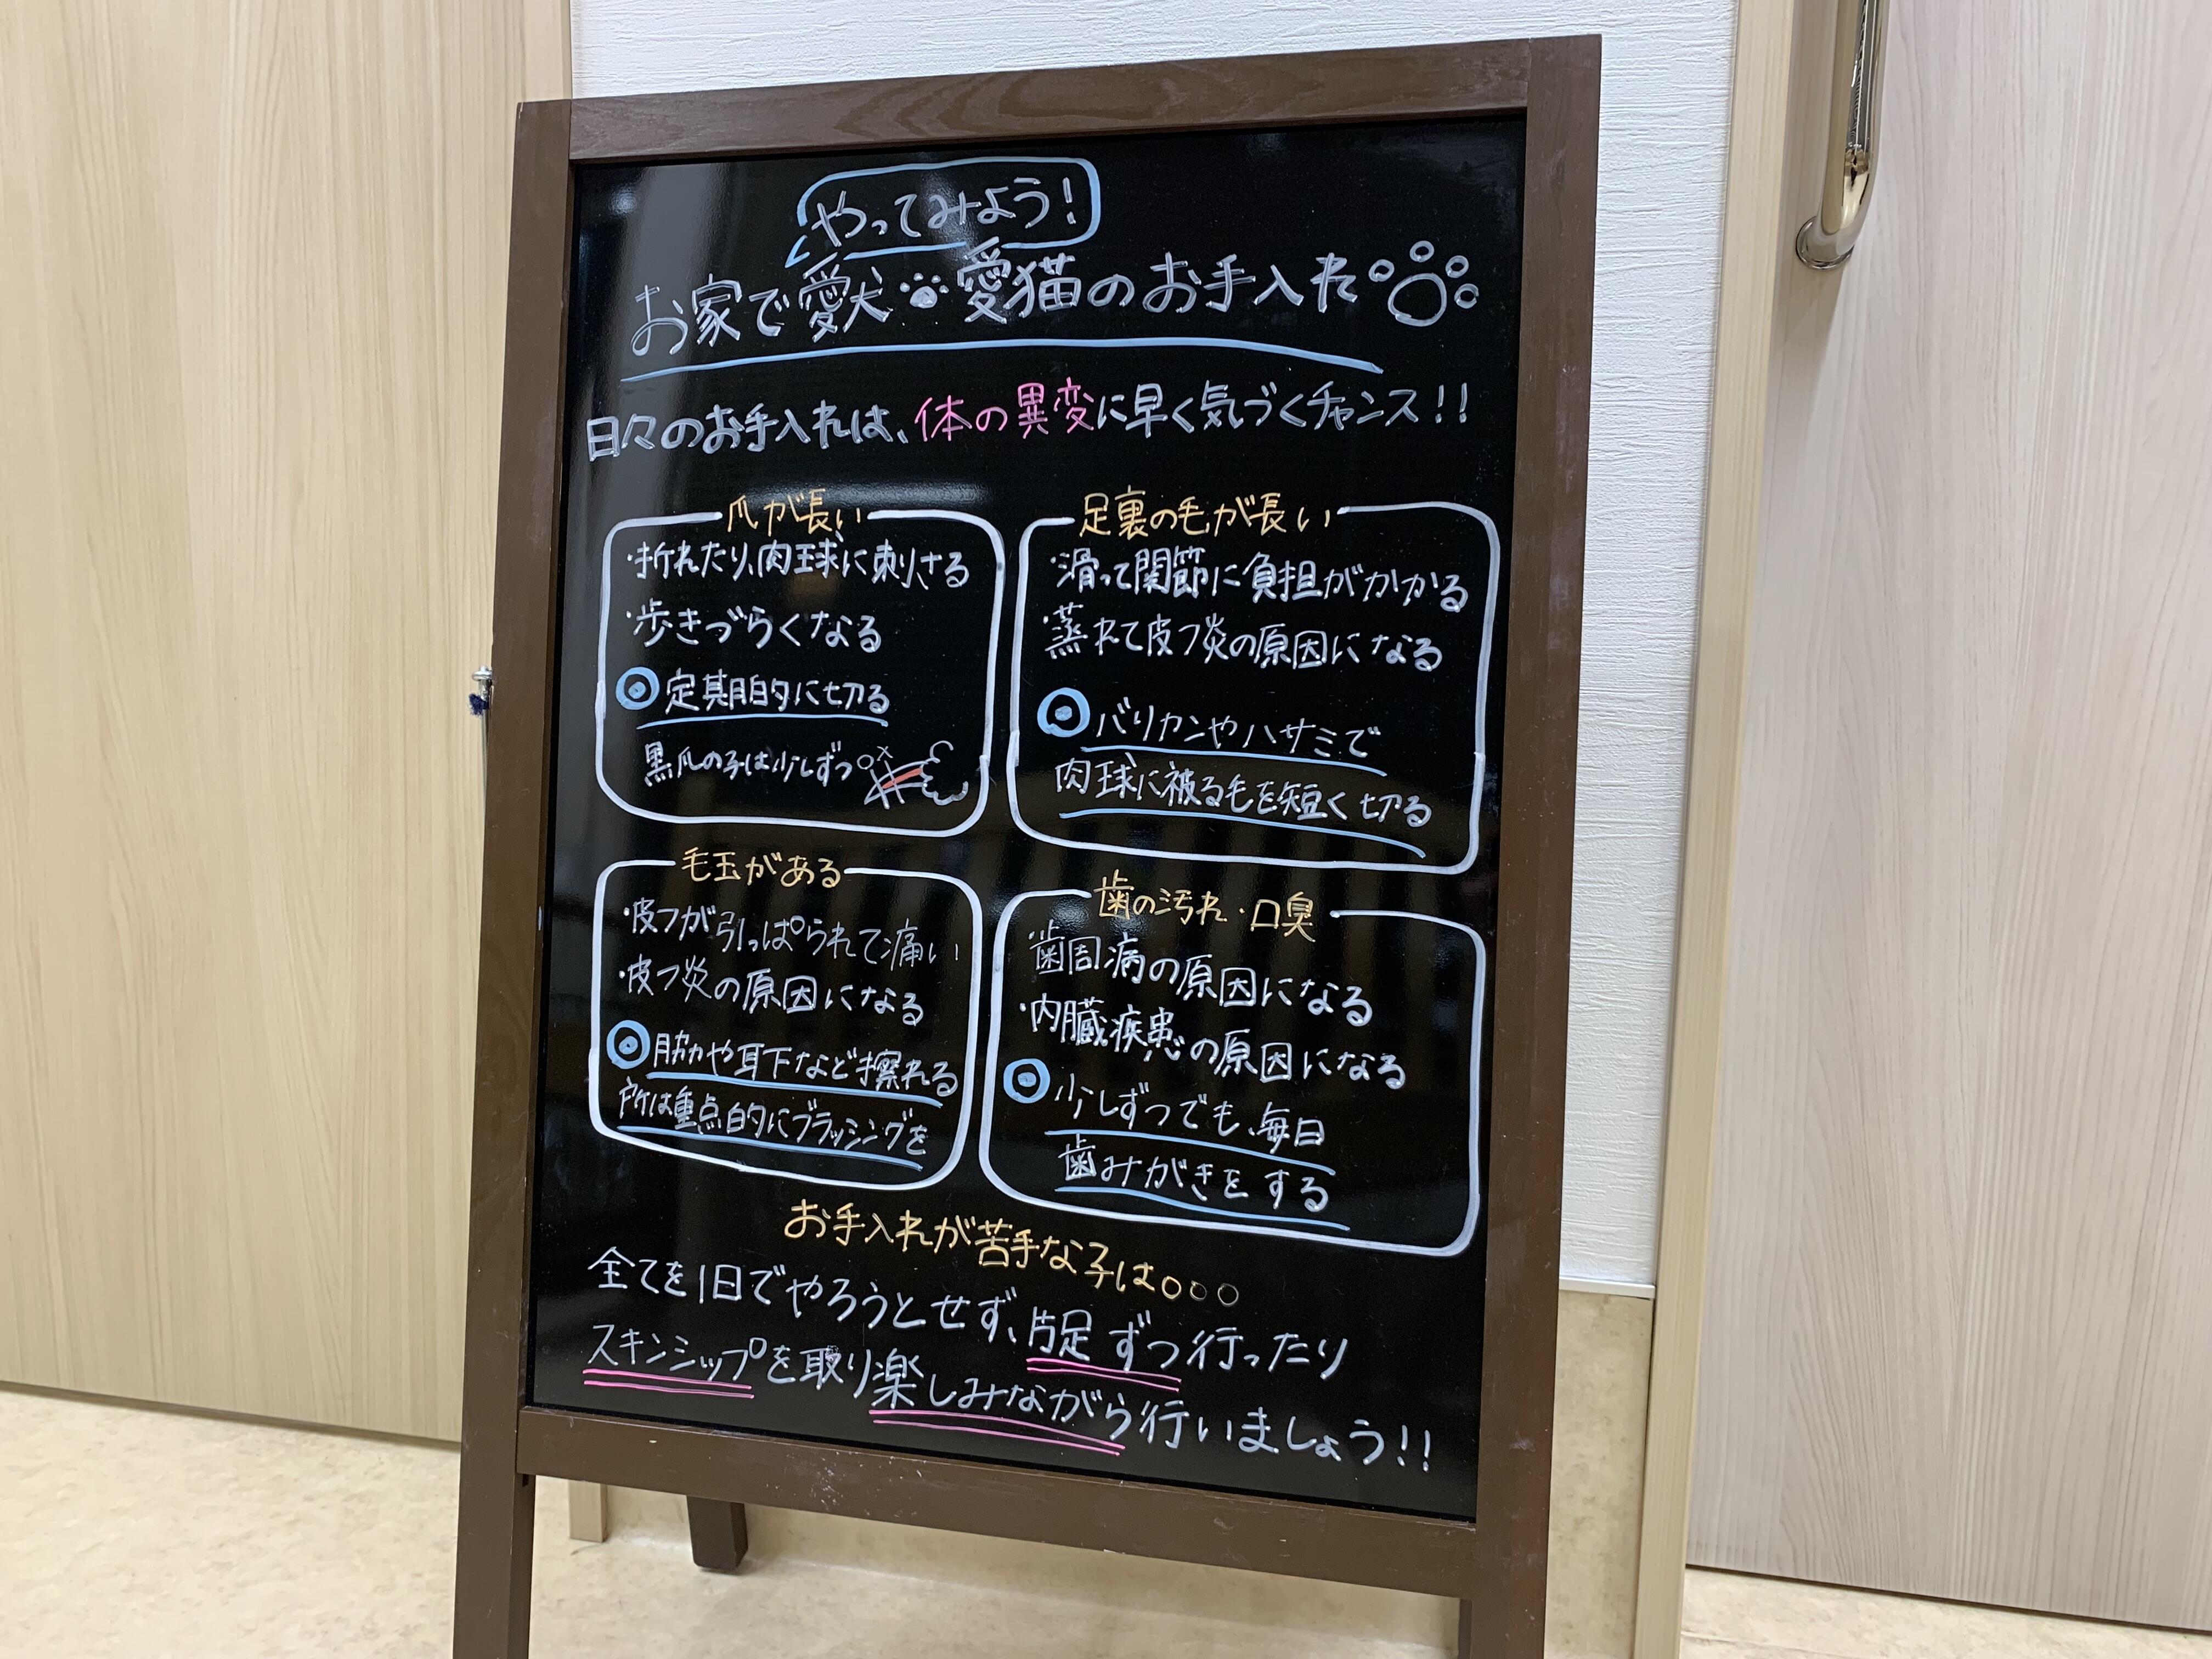 やってみよう!
お家で愛犬・愛猫のお手入れ
日々のお手入れは、体の異変に早く気づくチャンス!!
爪が長い
・折れたり、肉球に刺さる
・歩きづらくなる
◎定期的に切る
黒爪の子は少しずつ
足裏の毛が長い
・滑って関節に負担がかかる
・蒸れて皮フ炎の原因になる
◎バリカンやハサミで
肉球に被る毛を短く切る
毛玉がある
・皮フが引っぱられて痛い
・皮フ炎の原因になる
◎脇や耳下など擦れる
所は重点的にブラッシングを
歯の汚れ・口臭
・歯周病の原因になる
・内臓疾患の原因になる
◎少しずつでも、毎日
歯みがきをする
お手入れが苦手な子は。。。
全てを1日でやろうとせず、片足ずつ行ったり
スキンシップを取り楽しみながら行いましょう!!